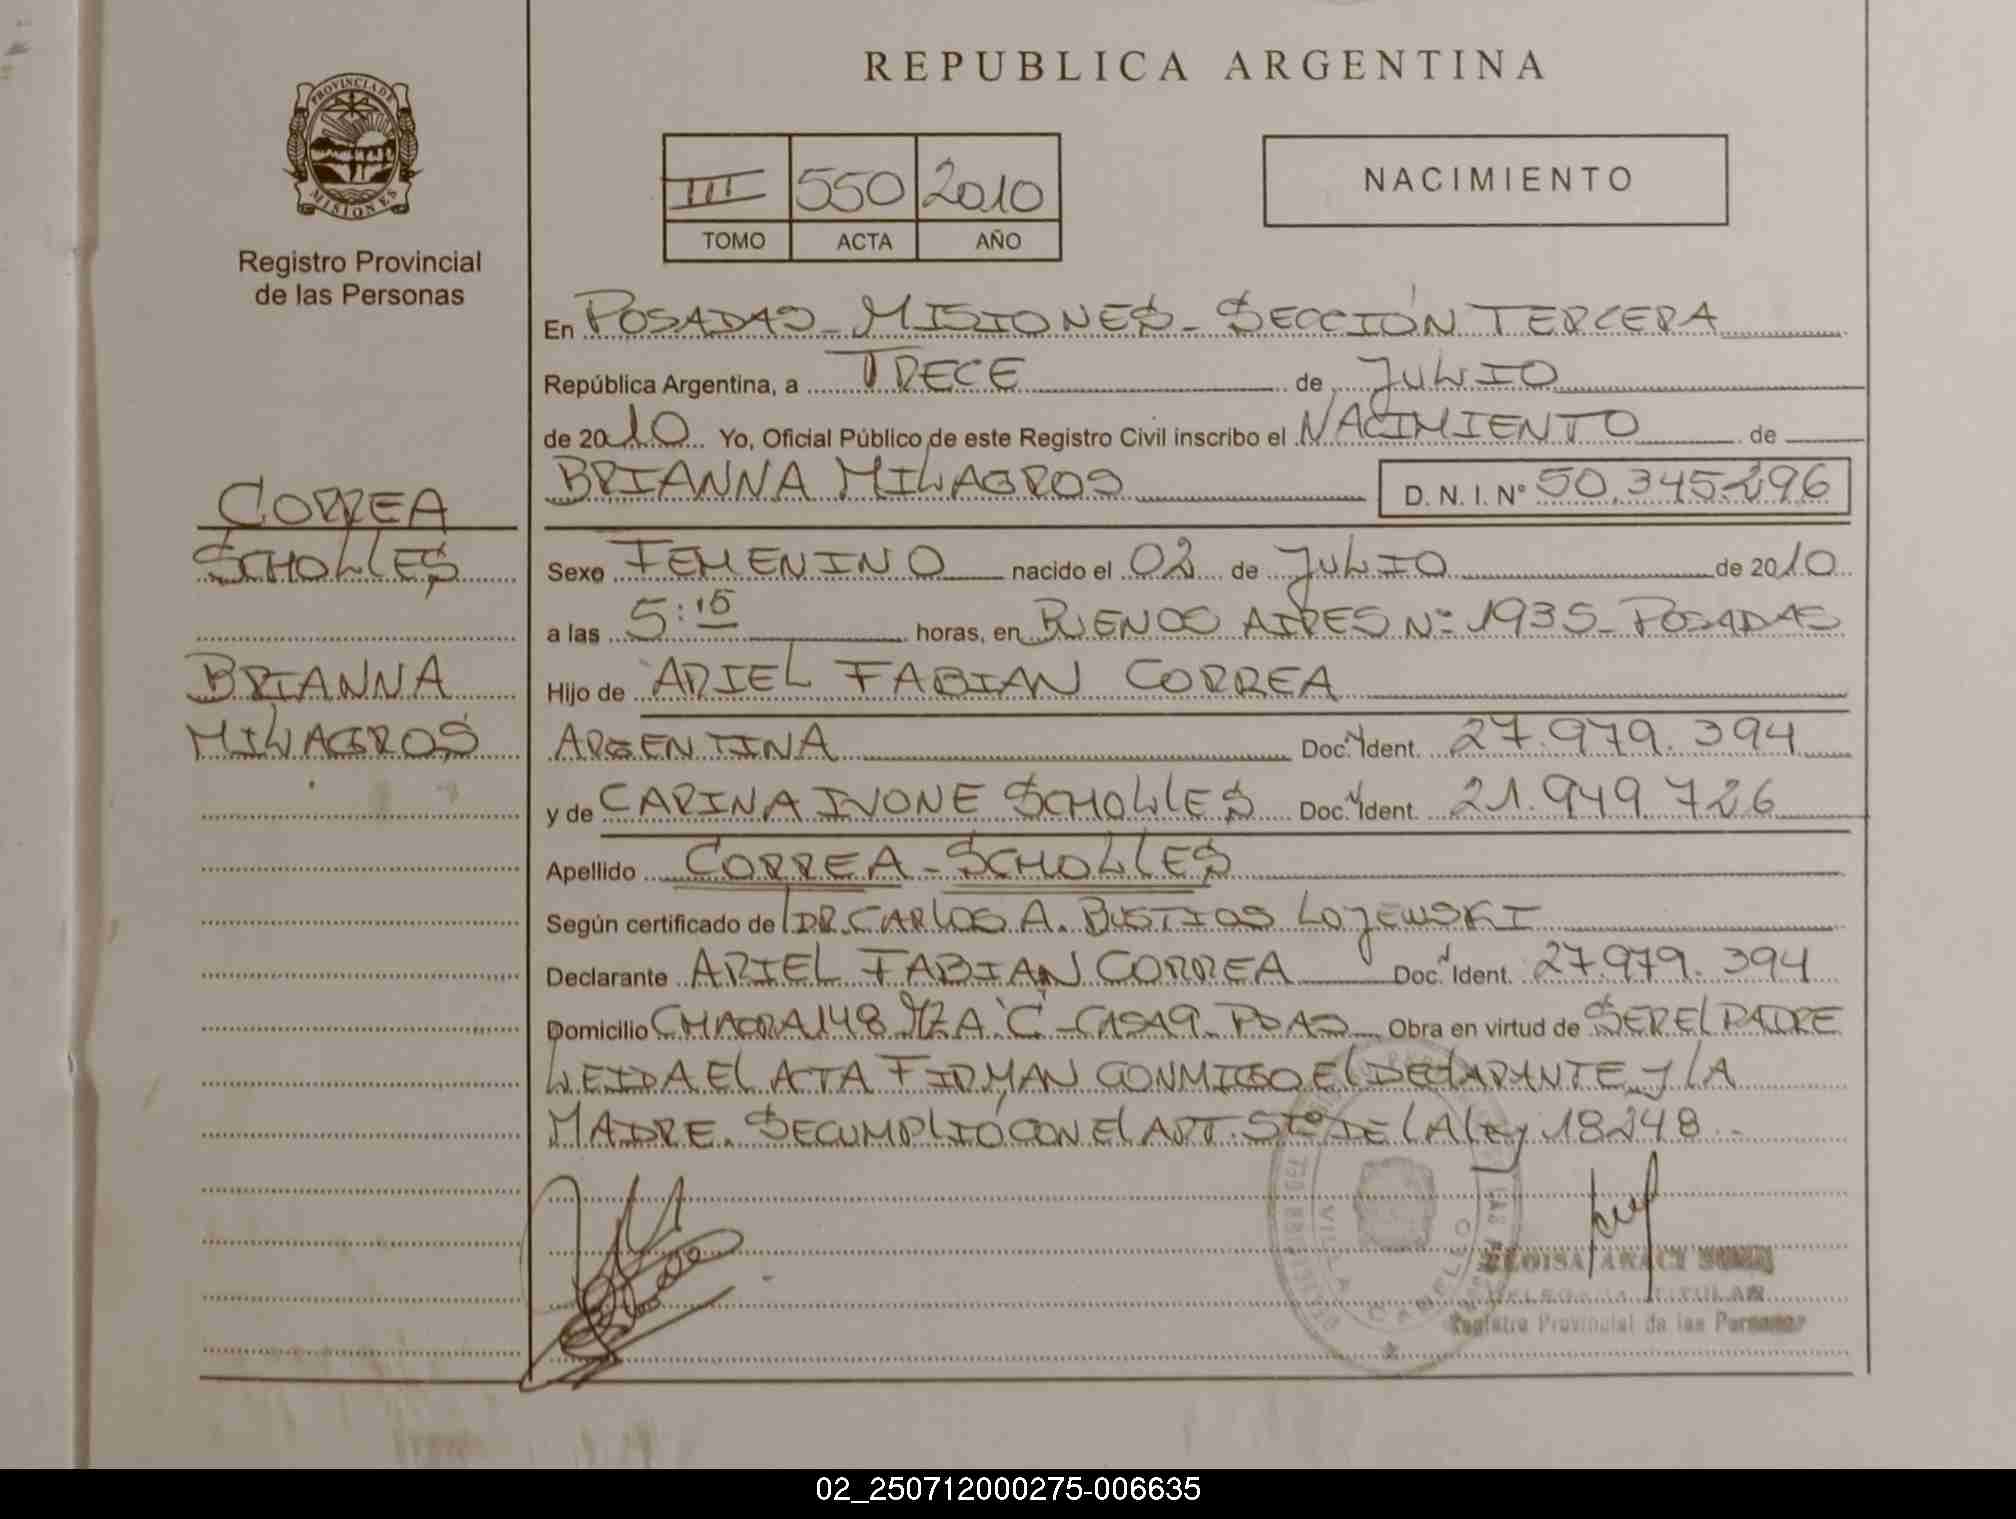 REPUBLICA ARGENTINA
PROVINCIA DE
MISIONES
Registro Provincial
de las Personas
III 550 2010
TOMO ACTA AÑO
NACIMIENTO
En POSADAS - MISIONES - SECCIÓN TERCERA
República Argentina, a TRECE de JULIO
de 2010 Yo, Oficial Público de este Registro Civil inscribo el NACIMIENTO de
BRIANNA MILAGROS D. N. I. N° 50.345.296
CORREA
SCHOLLES
BRIANNA
MILAGROS
Sexo FEMENINO nacido el 02 de JULIO de 2010
a las 5:15 horas, en BUENOS AIRES Nº 1935 - POSADAS
Hijo de ARIEL FABIAN CORREA
ARGENTINA Doc. Ident. 27.979.394
y de CARINA IVONE SCHOLLES Doc. Ident. 21.949.726
Apellido CORREA - SCHOLLES
Según certificado de DR. CARLOS A. BUSTIOS LOJEWSKI
Declarante ARIEL FABIAN CORREA Doc. Ident. 27.979.394
Domicilio CHACRA 148 MZA "C" - CASA 9 - PDAS Obra en virtud de SER EL PADRE
LEIDA EL ATA FIRMAN CONMIGO EL DECLARANTE Y LA
MADRE. SE CUMPLIÓ CON EL ART. 5to DE LA LEY 18248 -
VILLA CABELLO
ELOISA ARACY
DELEGADA TITULAR
Registro Provincial de las Personas
02_250712000275-006635